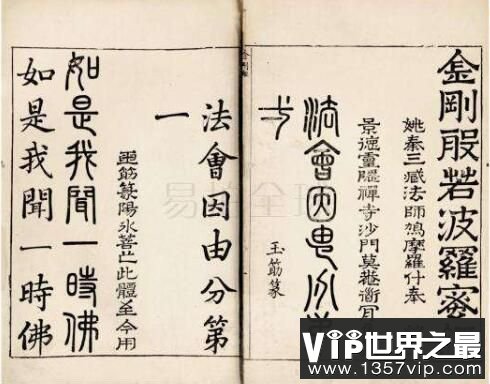 金剛般若波羅蜜
姚秦三藏法師鳩摩羅什奉
景德靈隱禪寺沙門莫菴道
法會因由分第
玉筯篆
法會因由分第
一
篆陽冰善此體至今用
如是我聞一時佛
如是我聞一時佛
易拍全球
VIP世界之最
www.1357vip.com